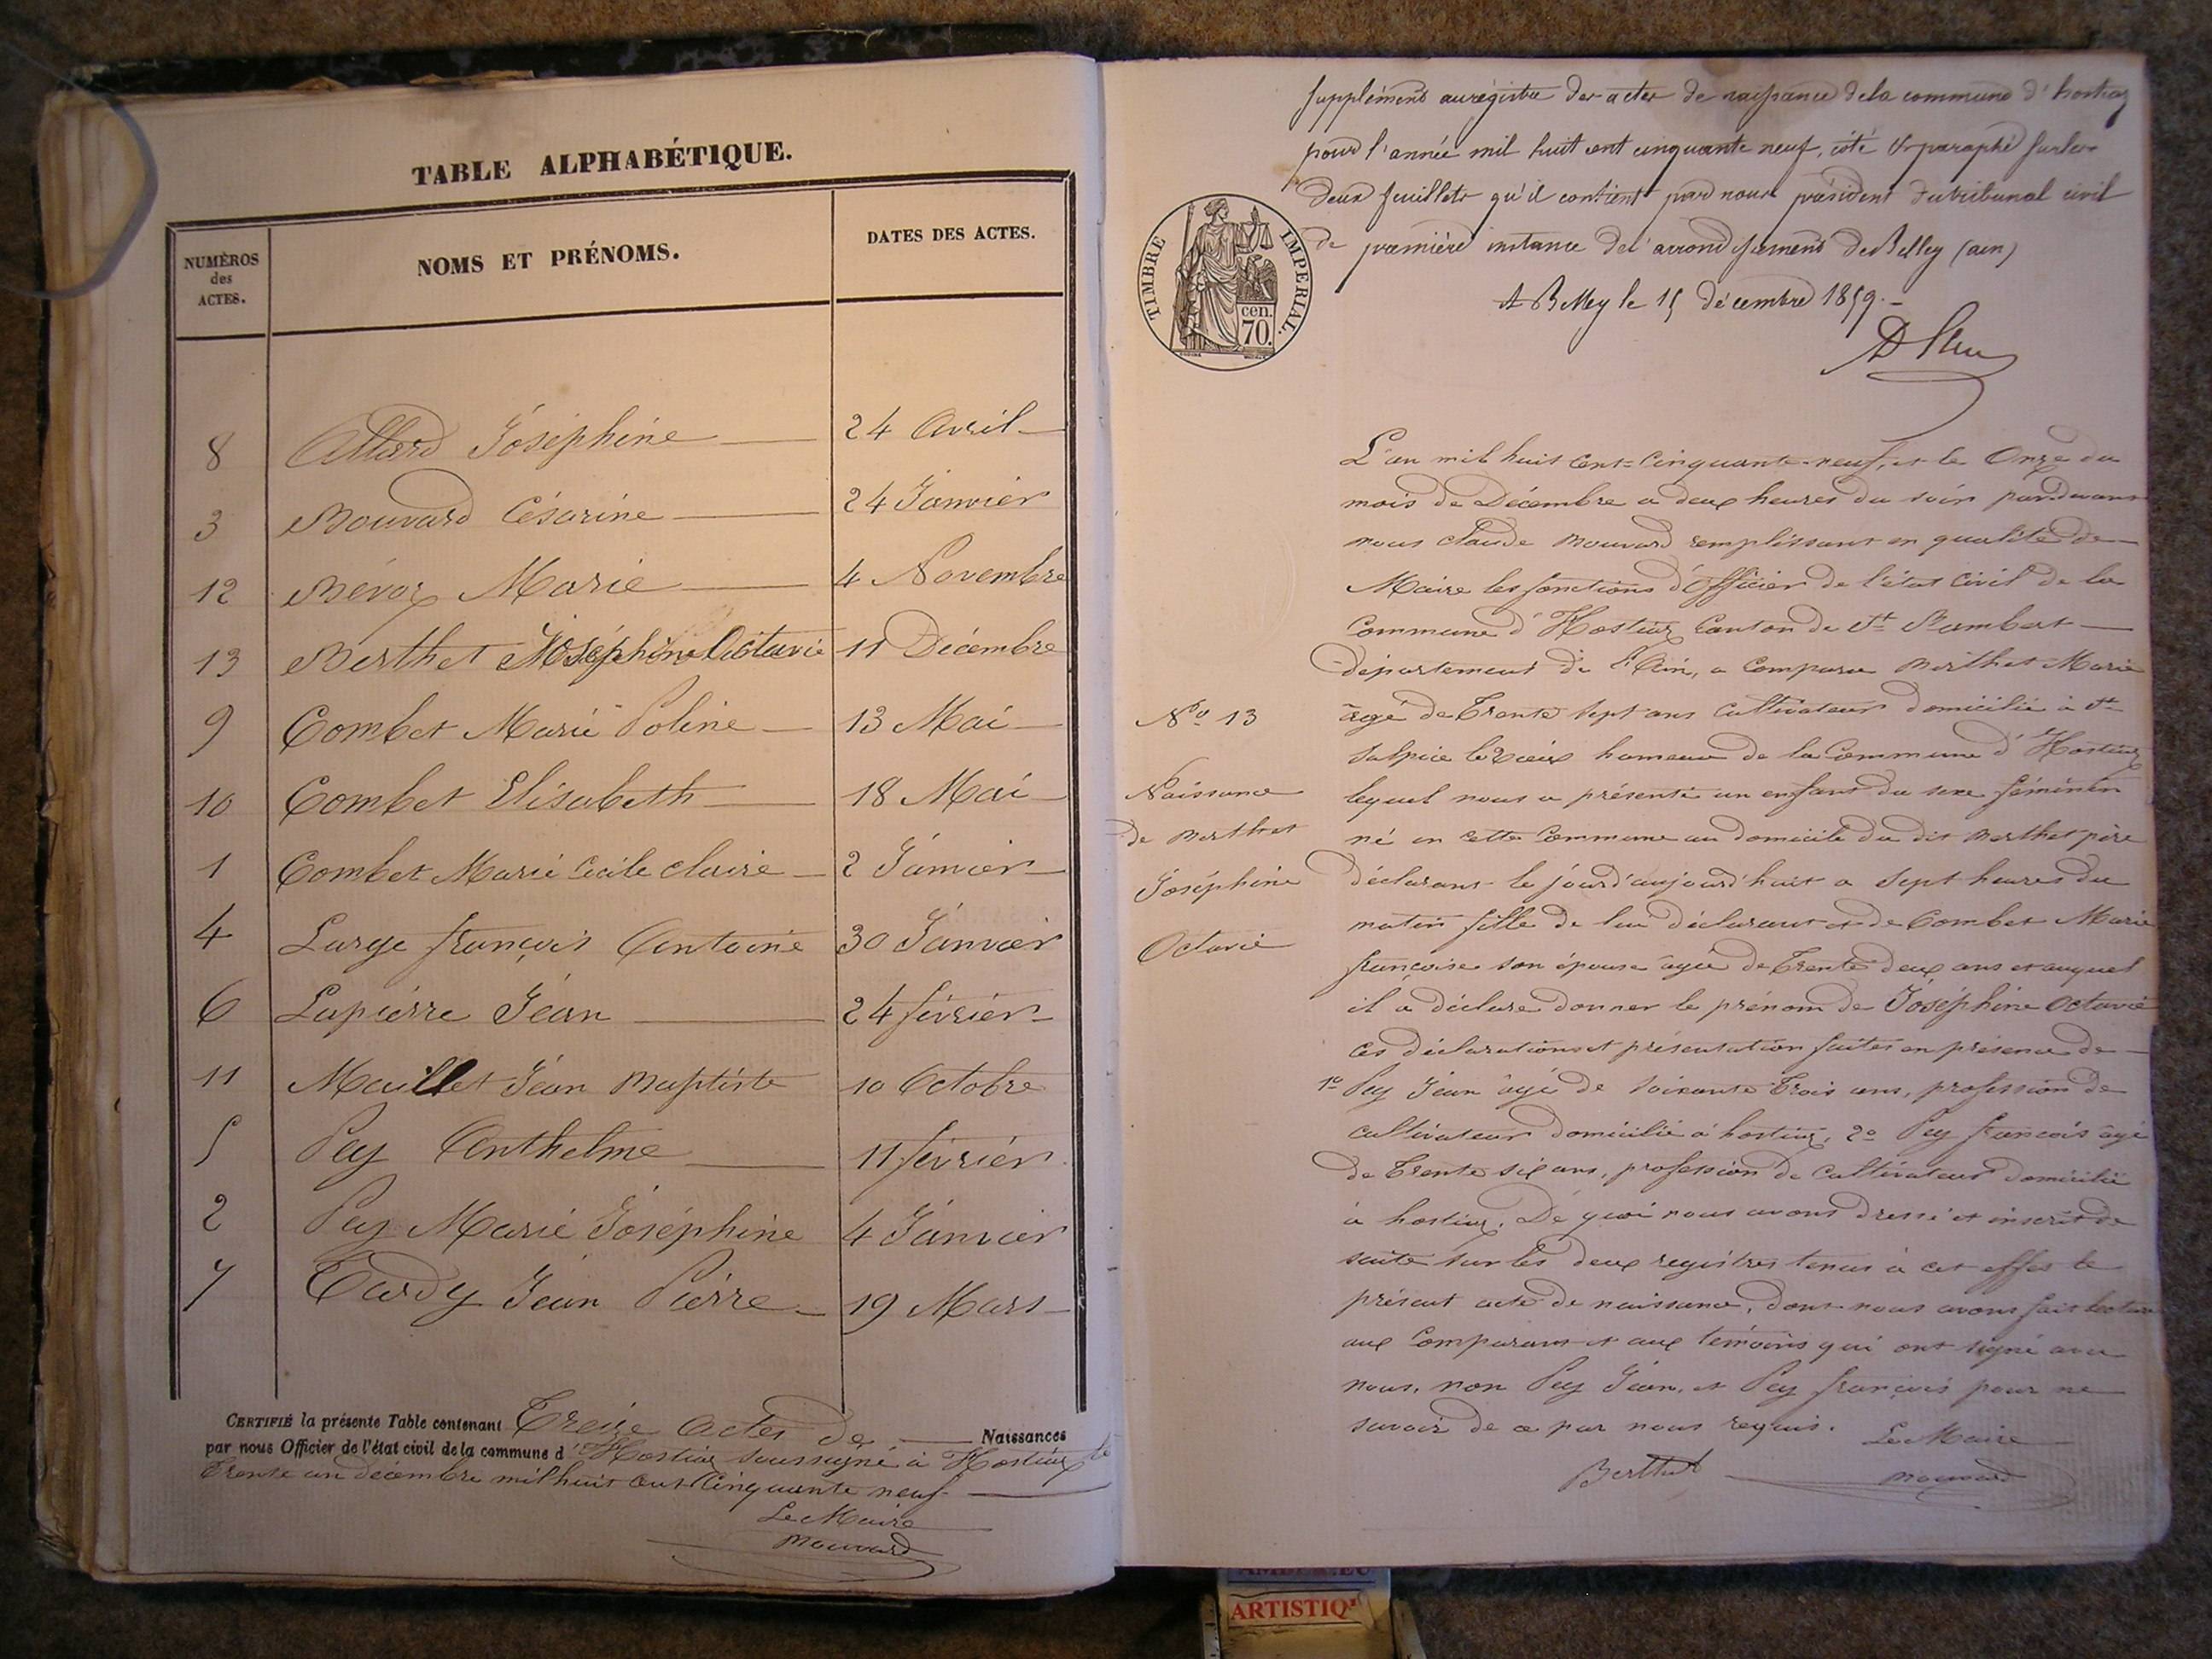 TABLE ALPHABÉTIQUE.
NUMÉROS des ACTES. NOMS ET PRÉNOMS. DATES DES ACTES.
8 Allard Joséphine 24 Avril
3 Bouvard Césarine 24 Janvier
12 Bévoz Marie 4 Novembre
13 Berthet Joséphine Octavie 11 Décembre
9 Combet Marie Poline 13 Mai
10 Combet Elisabeth 18 Mai
1 Combet Marie Cécile Claire 2 Janvier
4 Large françois Antoine 30 Janvier
6 Lapierre Jéan 24 février
11 Maillet Jéan Baptiste 10 Octobre
5 Pey Anthelme 11 février
2 Pey Marie Joséphine 4 Janvier
7 Tardy Jéan Pierre 19 Mars
CERTIFIÉ la présente Table contenant Treize Actes de Naissances
par nous Officier de l'état civil de la commune d'Hostiaz soussigné à Hostiaz le
Trente un décembre mil huit Cent Cinquante neuf
Le Maire
Bouvard
supplément au régistre des actes de naissance de la commune d'hostiaz
pour l'année mil huit cent cinquante neuf, côté & paraphé sur les
deux feuillets qu'il contient par nous président du tribunal civil
de première instance de l'arrondissement de Belley (ain)
A Belley le 15 décembre 1859.
TIMBRE IMPERIAL.
cen. 70.
L'an mil huit Cent-Cinquante-neuf, et le Onze du
mois de Décembre a deux heures du soir par devant
nous claude Bouvard remplissant en qualité de
Maire les fonctions d'Officier de l'état Civil de la
Commune d'Hostiaz Canton de St Rambert
département de l'Ain, a Comparu Berthet Marie
âgé de Trente sept ans Cultivateur domicilié à St
Sulpice le Vieux hameau de la Commune d'Hostiaz
lequel nous a présenté un enfant du sexe féminin
né en cette Commune au domicile du dit Berthet père
déclarant le jourd'aujourd'huit a sept heures du
matin fille de lui déclarant et de Combet Marie
françoise son épouse âgée de Trente deux ans et auquel
il a déclare donner le prénom de Joséphine Octavie
Ces déclarations et présentation faites en présence de
1º Pey Jéan âgé de soixante Trois ans, profession de
cultivateur domicilié à hostiaz, 2º Pey françois âgé
de Trente six ans, profession de Cultivateur domicilié
à hostiaz. De quoi nous avons dressé et inscrit de
suite sur les deux registres tenus à cet effet le
présent acte de naissance, dont nous avons fait lecture
aux Comparant et aux témoins qui ont signé avec
nous, non Pey Jéan, et Pey françois pour ne
savoir de ce par nous requis.
Le Maire
Berthet Bouvard
Nº 13
Naissance
de Berthet
Joséphine
Octavie
ARTISTIQ